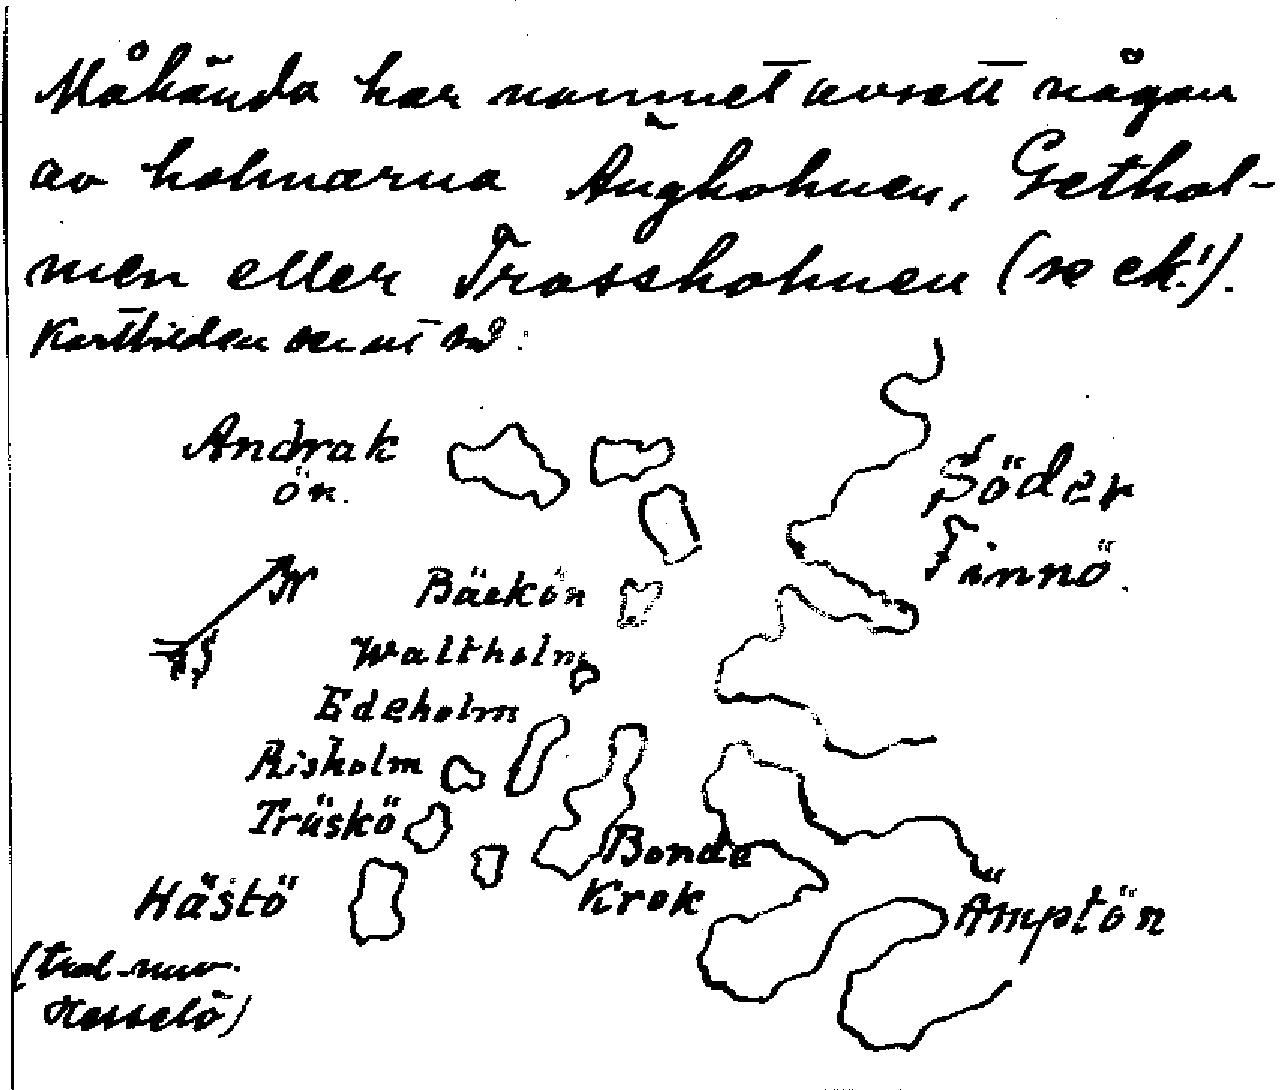 Måhända har namnet avsett någon
av holmarna Ängholmen, Gethol-
men eller Trossholmen (se ek!).
Kartbilden ser ut så:
Andrak
ön.
Söder
Finnö.
N
S
Bäckön
Waltholm
Edeholm
Risholm
Träskö
Bonde
Krok
Hästö
Ämptön
(trol. nuv.
Hasselö)